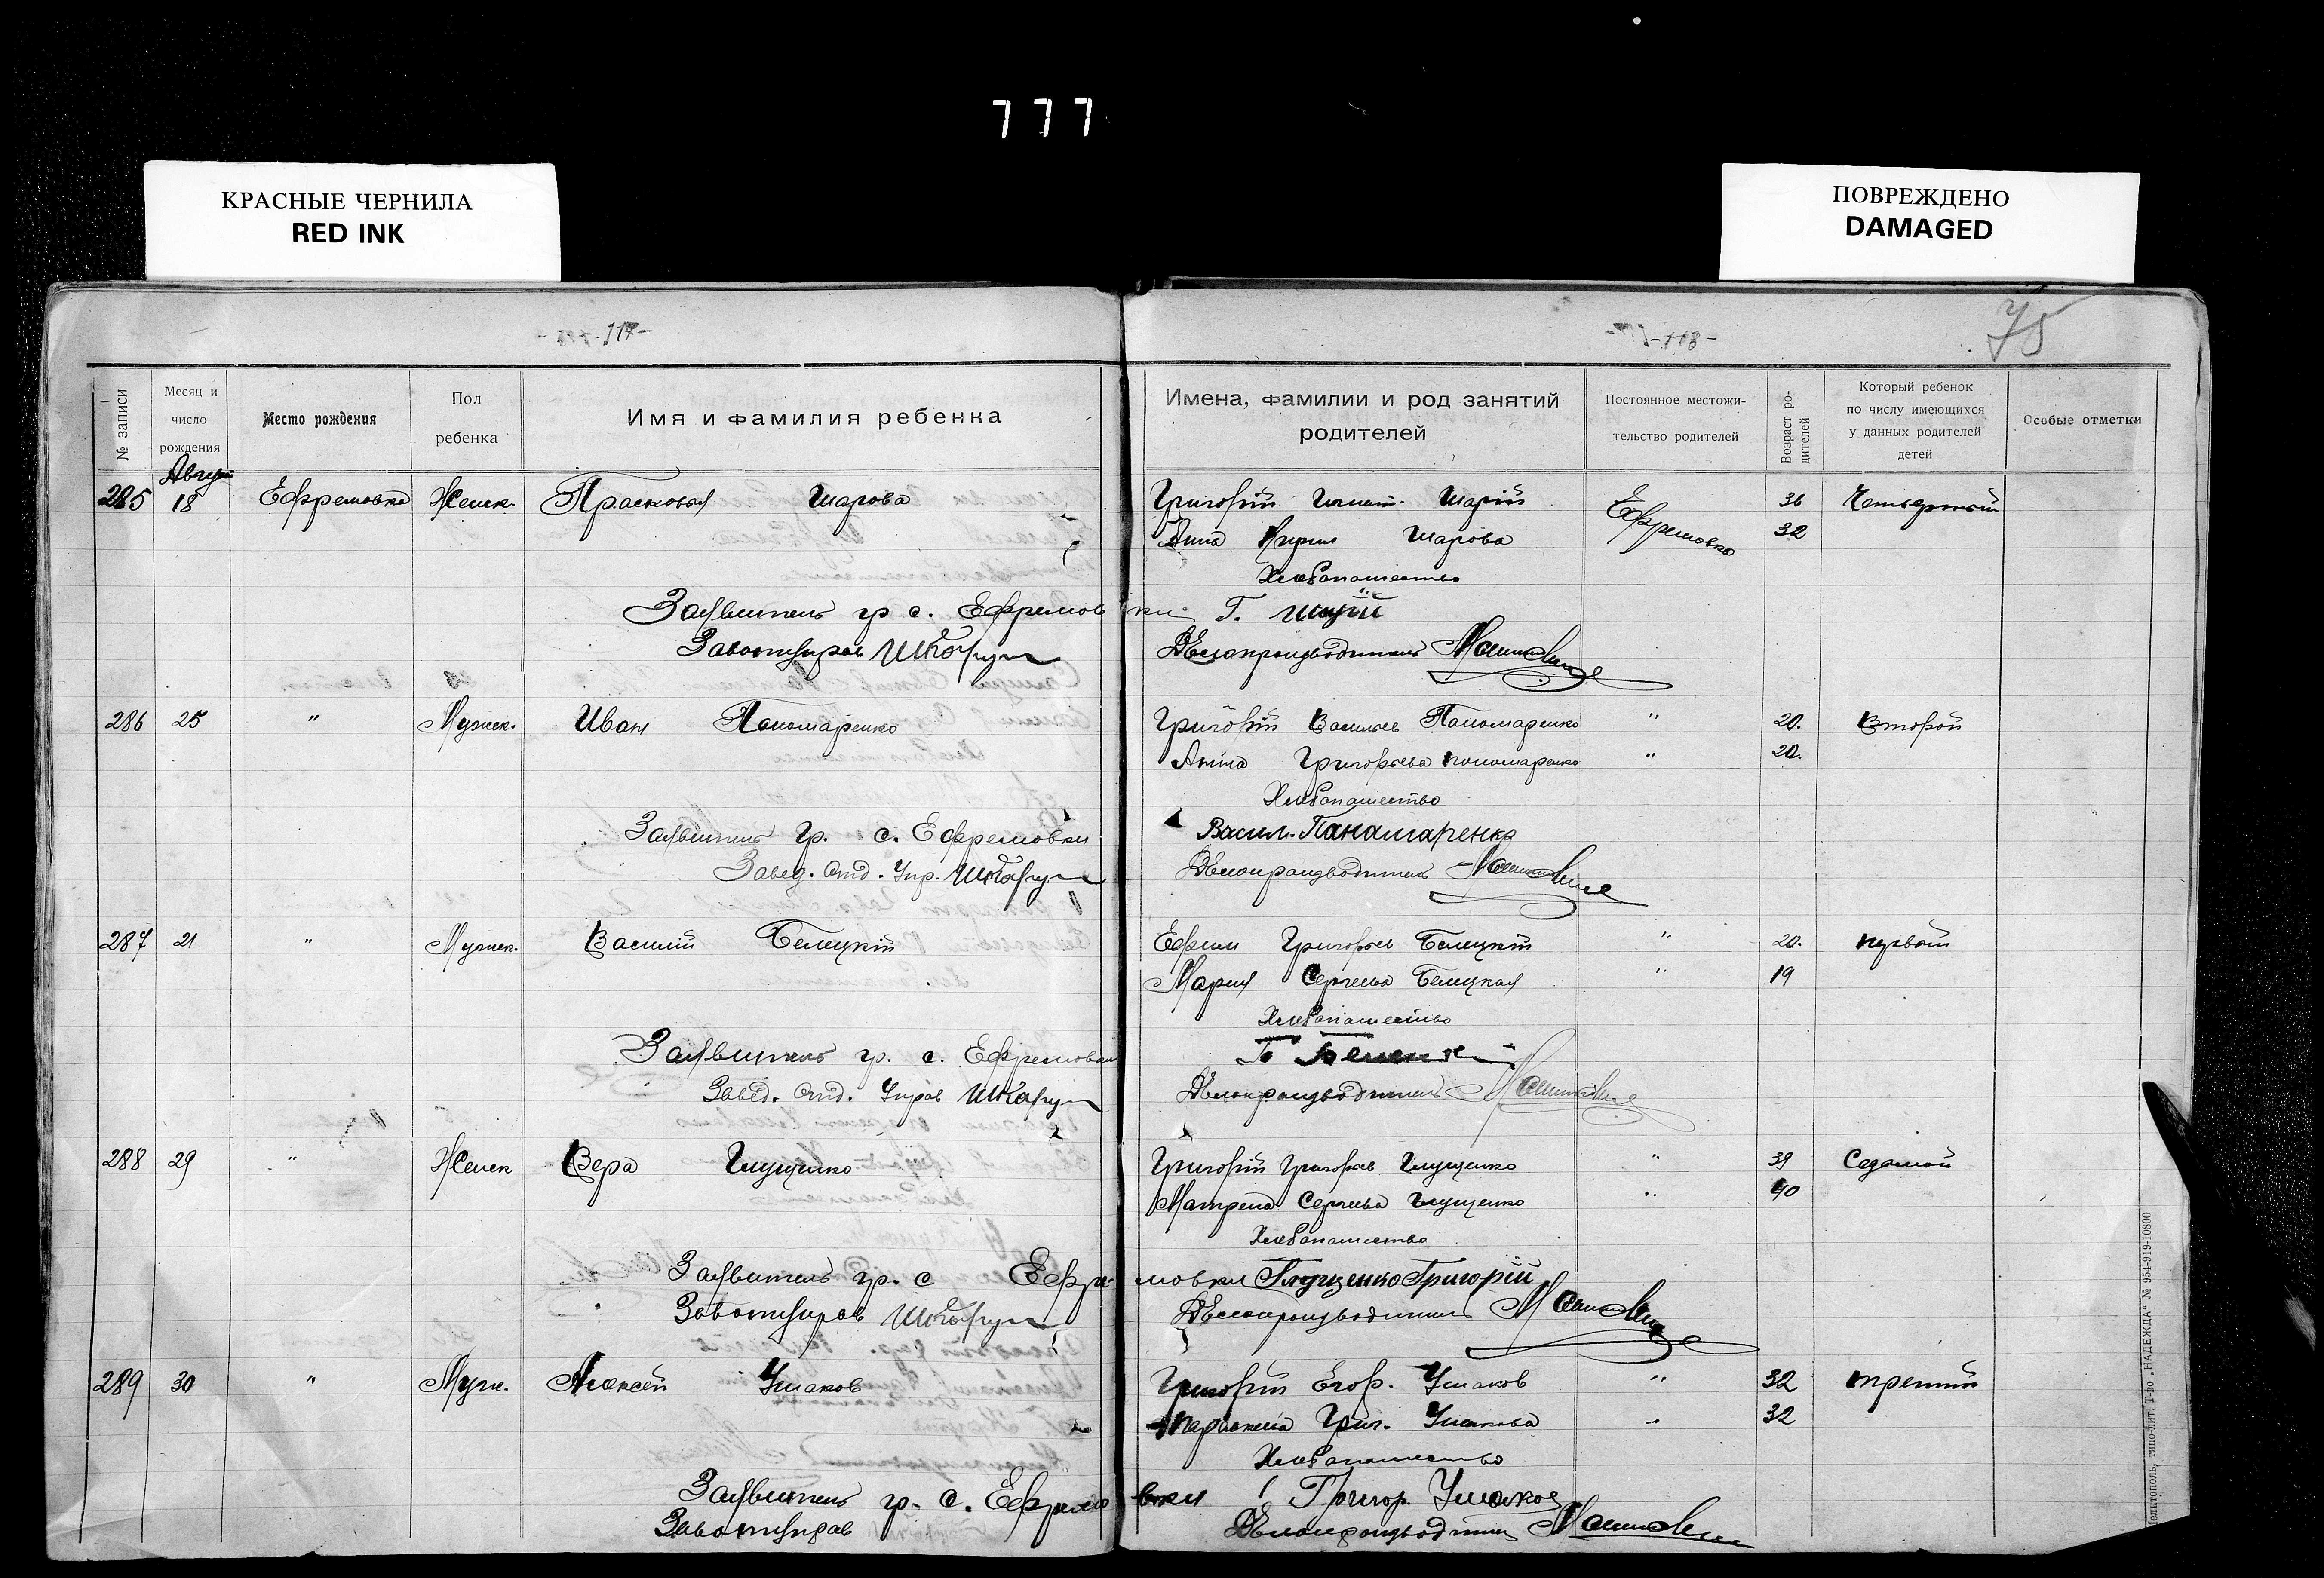 777
КРАСНЫЕ ЧЕРНИЛА
RED INK
ПОВРЕЖДЕНО
DAMAGED
-117-
-118-
75
№ записи
Месяц и число рождения
Место рождения
Пол ребенка
Имя и фамилия ребенка
Имена, фамилии и род занятий родителей
Постоянное местожи-тельство родителей
Возраст ро-дителей
Который ребенок по числу имеющихся у данных родителей детей
Особые отметки
285 Август 18 Ефремовка Женск. Прасковья Шарова Григорій Игнат. Шарій Ефремовка 36 Четвертый
Анна Шарова 32
Хлебопашество
Заявитель гр с. Ефремовки Г. Шарій
Завотупров Делопроизводитель
286 25 " Мужск. Иван Пономаренко Григорій Васильев Пономаренко " 20. Второй
Анна Григорьева Пономаренко " 20.
Хлебопашество
Заявитель гр. с. Ефремовки Васил. Панамаренко
Завед. Отд. Упр. Делопроизводитель
287 21 " Мужск. Василий Белецкій Ефим Григорьев Белецкій " 20. первый
Мария Сергеева Белецкая " 19
Хлебопашество
Заявитель гр. с. Ефремовки
Завед. Отд. Управ Делопроизводитель
288 29 " Женск Вера Глущенко Григорій Григорьев Глущенко " 39 Седьмой
Матрена Сергеева Глущенко " 40
Хлебопашество
Заявитель гр. с Ефремовки Глущенко Григорій
Завотупров Делопроизводитель
289 30 " Мужс. Алексей Ушаков Григорій Егор. Ушаков " 32 третий
Григ. Ушакова " 32
Хлебопашество
Заявитель гр. с. Ефремовки Григор. Ушаков
Завотупров Делопроизводитель
Мелитополь, типо-лит. Т-во „НАДЕЖДА" № 954-919-10800